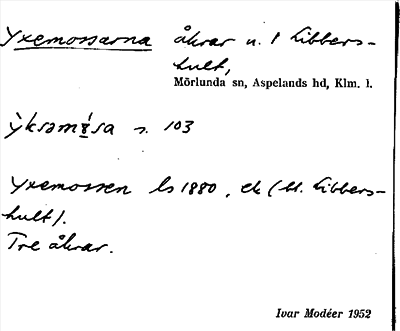 Yxemossarna åkrar u. 1 Libbers-
hult,
Mörlunda sn, Aspelands hd, Klm. l.
s. 103
Yxemossen ls 1880, ek (bl. Libbers-
hult).
Tre åkrar.
Ivar Modéer 1952